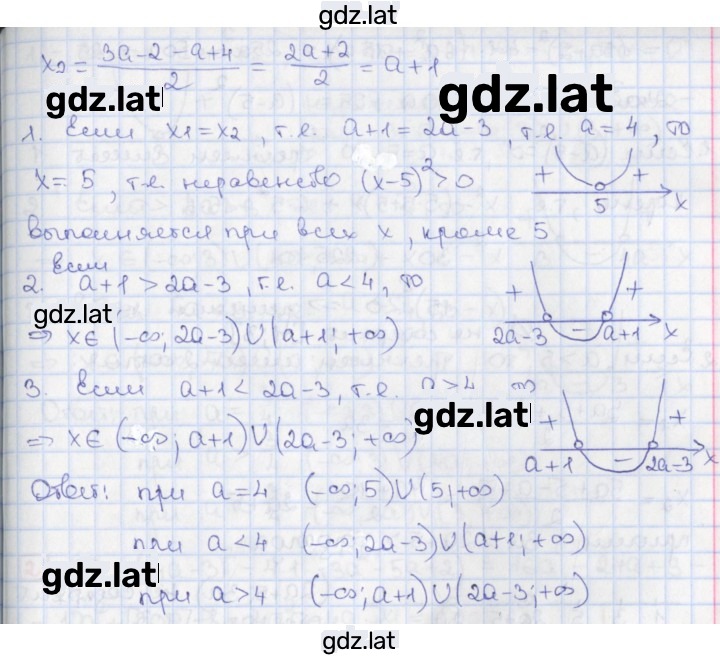 gdz.lat
x₂ = (3a-2-a+4)/2 = (2a+2)/2 = a+1
gdz.lat
gdz.lat
1. Если x₁=x₂, т.е. a+1=2a-3, т.е. a=4, то
x=5, т.е. неравенство (x-5)²>0
+ + 5 x
выполняется при всех x, кроме 5
2. Если a+1>2a-3, т.е. a<4, то
+ - + 2a-3 a+1 x
gdz.lat
⇒ x∈(-∞; 2a-3)∪(a+1; +∞)
3. Если a+1<2a-3, т.е. a>4
+ - + a+1 2a-3 x
gdz.lat
⇒ x∈(-∞; a+1)∪(2a-3; +∞)
Ответ: при a=4 (-∞; 5)∪(5; +∞)
при a<4 (-∞; 2a-3)∪(a+1; +∞)
gdz.lat
при a>4 (-∞; a+1)∪(2a-3; +∞)
gdz.lat